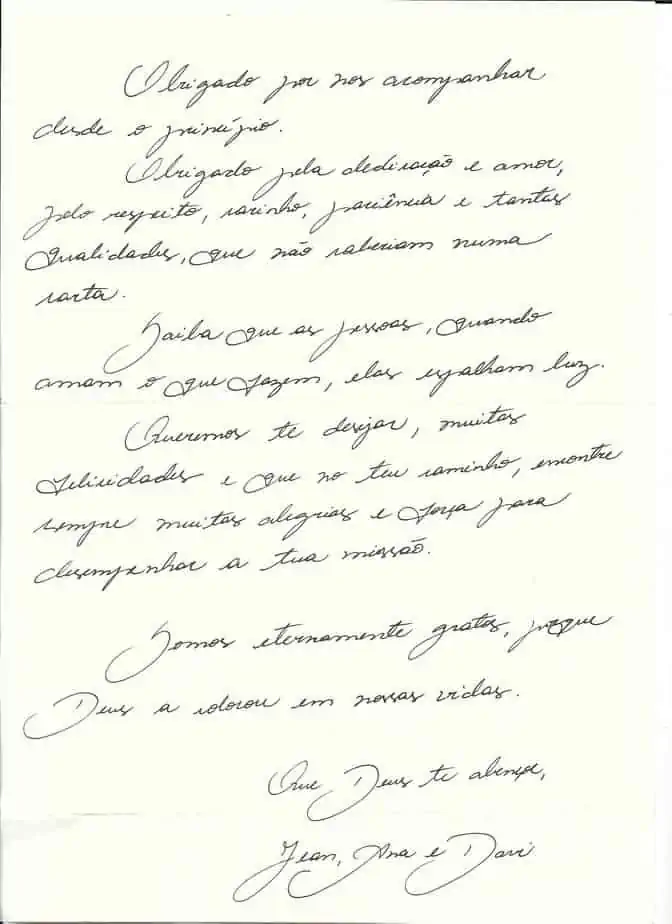 Obrigado por nos acompanhar
desde o princípio.
Obrigado pela dedicação e amor,
pelo respeito, carinho, paciência e tantas
qualidades, que não caberiam numa
carta.
Saiba que as pessoas, quando
amam o que fazem, elas espalham luz.
Queremos te desejar, muitas
felicidades e que no teu caminho, encontre
sempre muitas alegrias e força para
desempenhar a tua missão.
Somos eternamente gratos, porque
Deus a colocou em nossas vidas.
Que Deus te abençoe,
Jean, Ana e Davi